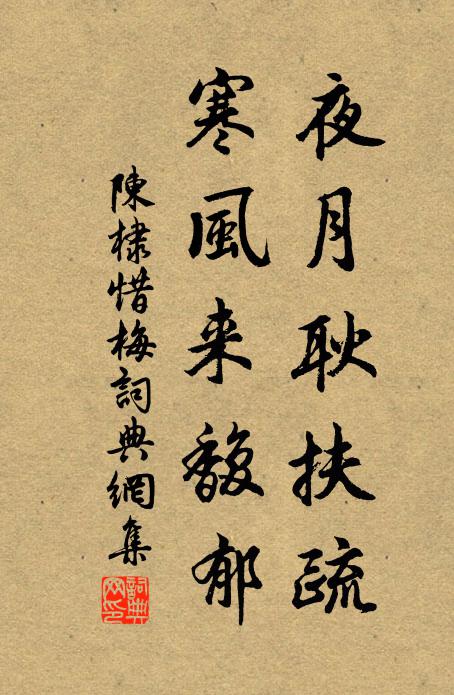 夜月耿扶疏
寒風来馥郁
陳棣惜梅詞典網集
詞典網印